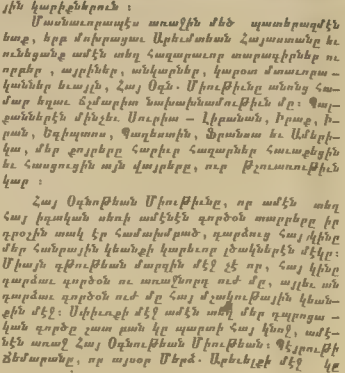 յին կարիքներուն ։
Մասնաւորապէս առաջին մեծ պատերազմէն
ետք, երբ մոխրացաւ Արեւմտեան Հայաստանը եւ
ունեցանք ամէն տեղ հազարաւոր տարագիրներ ու
որբեր, այրիներ, անկարներ, կարօտ մտաւորա —
կաններ եւայլն, Հայ Օգն. Միութիւնը անոնց հա—
մար եղաւ ճշմարիտ նախախնամութիւն մը։ Պալ—
քաններէն մինչեւ Սուրիա — Լիբանան, Իրաք, Ի—
րան, Եգիպտոս, Պաղեստին, Ֆրանսա եւ Ամերի—
կա, մեր քոյրերը հարիւր հազարներ հաւաքեցին
եւ հասցուցին այն վայրերը, ուր Թշուառութիւն
կար ։
Հայ Օգնութեան Միութիւնը, որ ամէն տեղ
Հայ իգական սեռի ամէնէն գործօն տարրերը իր
դրօշին տակ էր համախմբած, դարձուց Հայ կինը
մեր հանրային կեանքի կարեւոր լծակներէն մէկը։
Միայն գթութեան մարզին մէջ չէ որ, հայ կինը
դարձաւ գործօն ու առաջնորդ ուժ մը, այլեւ ան
դարձաւ գործօն ուժ մը հայ մշակութային կեան—
քին մէջ։ Սփիւռքի մէջ ամէն տեղ մեր դպրոցա —
կան գործը շատ բան կը պարտի հայ կնոջ, ամէ—
նէն առաջ Հայ Օգնութեան Միութեան։ Պէյրութի
Ճեմարանը, որ այսօր Մերձ. Արեւելքի մէջ կը